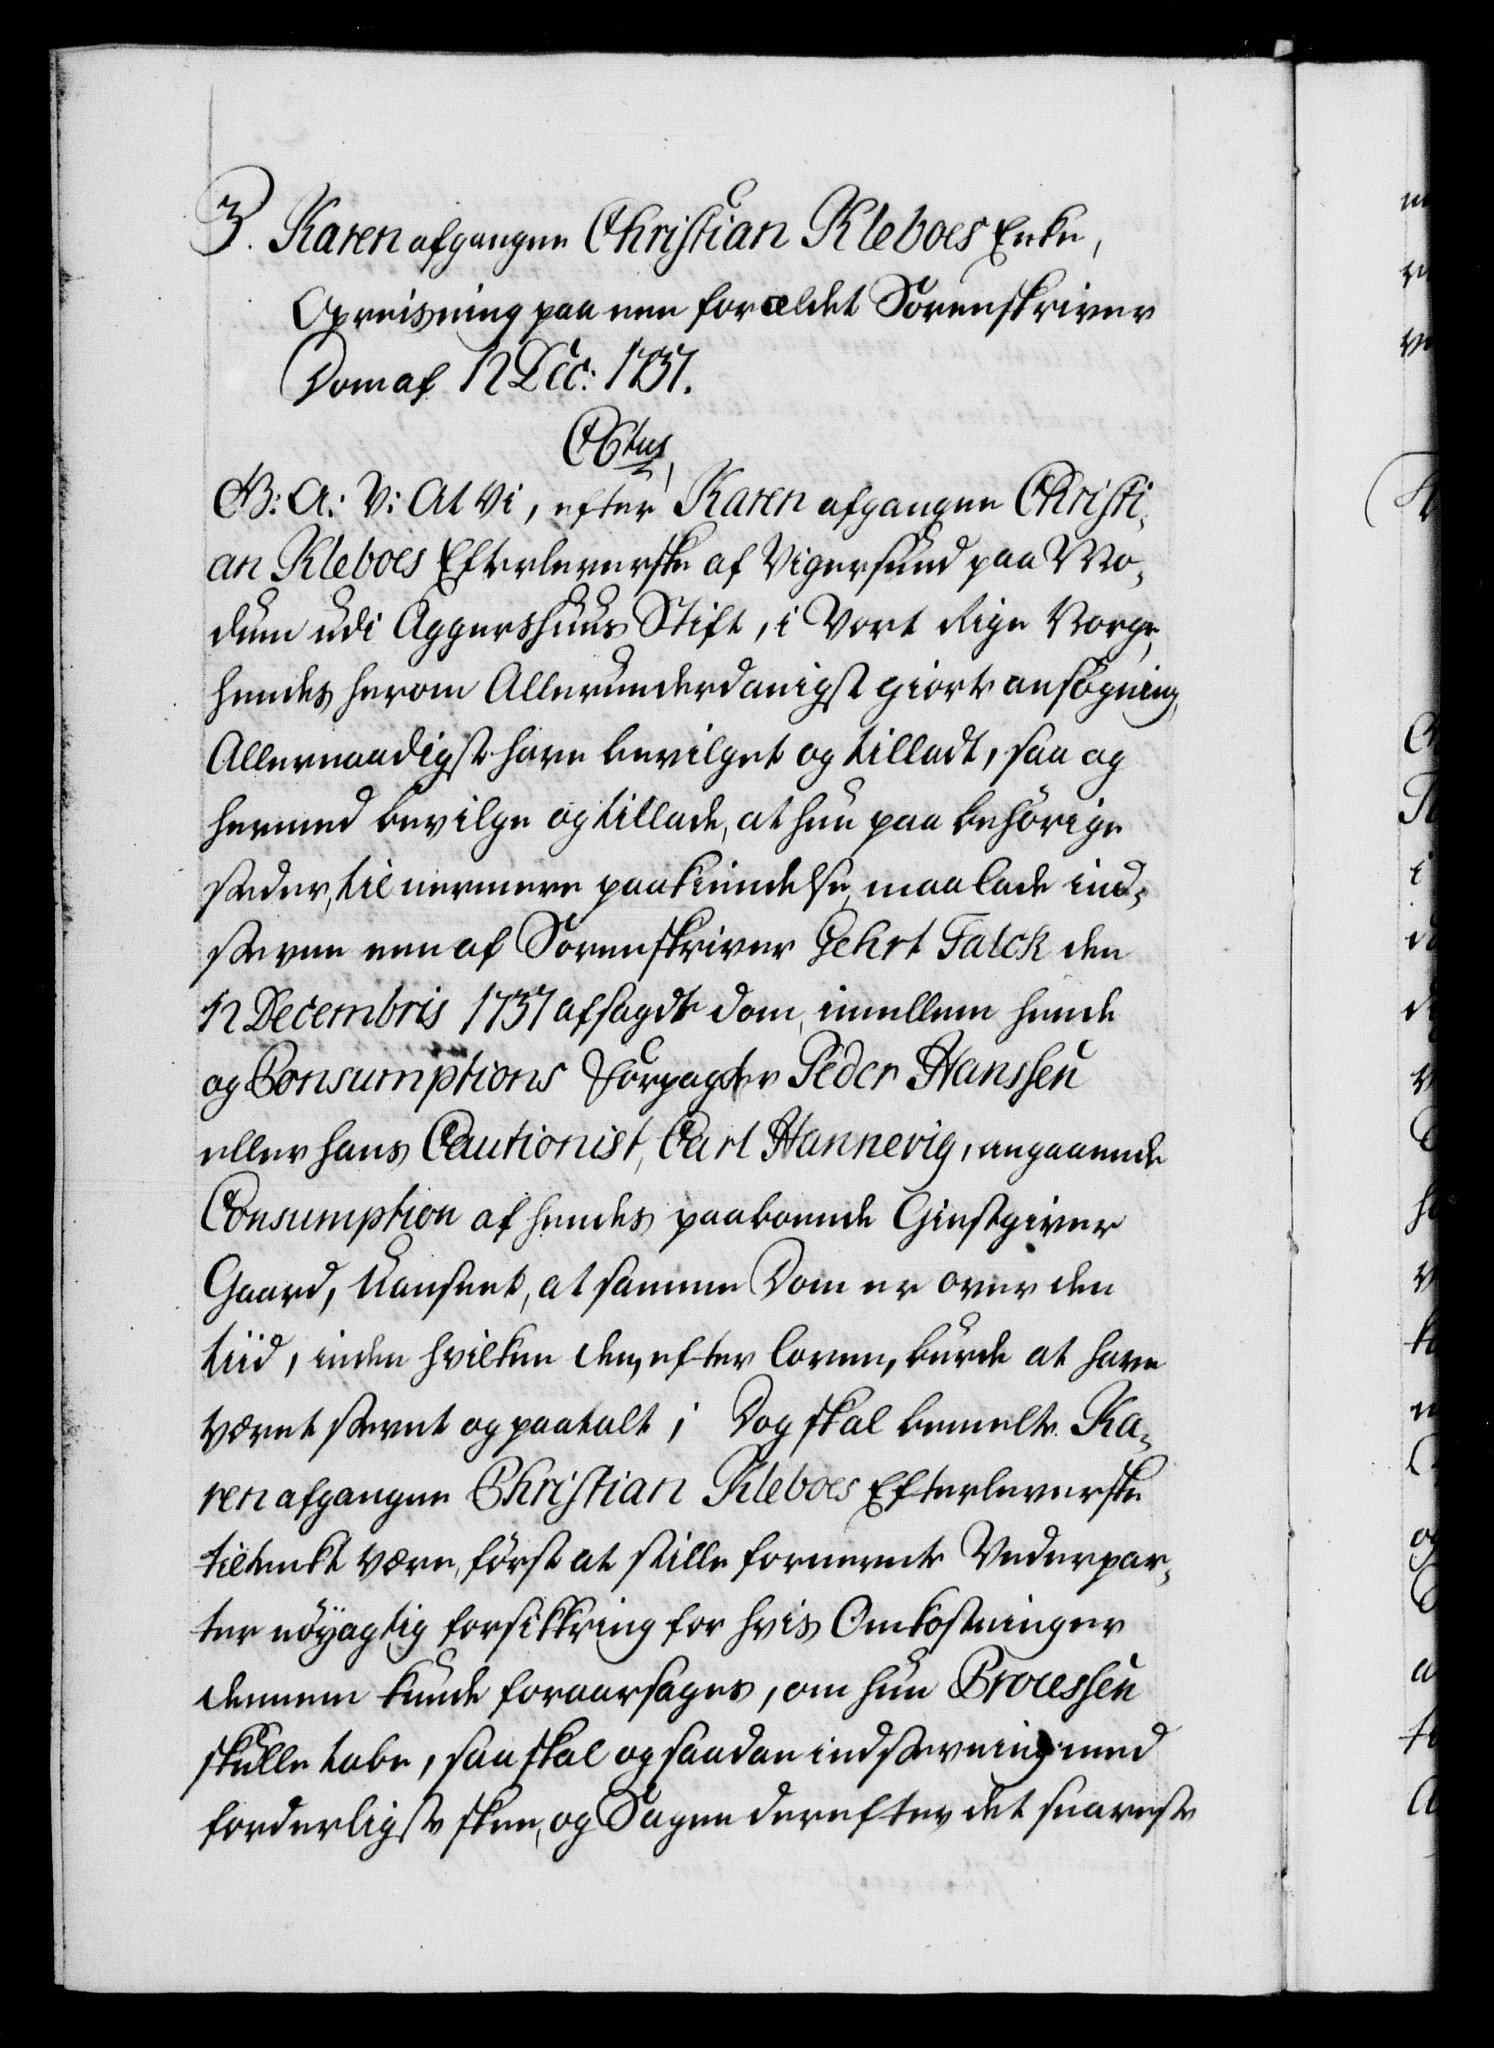 3. Karen afgangne Christian Kleboes Enke,
Opreisning paa een forældet Sorenskriver
Dom af 12 Dec: 1737.
C6tus
G. B: A: V: At Vi, efter Karen afgangne Christi-
an Kleboes Efterleverske af Vigersund paa Mo-
dum udi Aggershuus Stift, i Vort Rige Norge,
hendes herom Allerunderdanigst giorte ansøgning,
Allernaadigst have bevilget og tilladt, saa og
hermed bevilge og tillade, at hun paa behörige
stæder, til nermere paakiendelse, maa lade ind-
stevne een af Sorenskriver Gehrt Falck den
12 Decembris 1737 afsagdt dom, imellem hende
og Consumptions Forpagter Peder Hanssen
eller hans Cautionist, Carl Hannevig, angaaende
Consumption af hendes paaboende Giestgiver
Gaard, Uanseet, at samme Dom er over den
tiid, inden hvilken den, efter loven, burde at have
været stevnt og paatalt; Dog skal bemelte Ka-
ren afgangne Christian Kleboes Efterleverske
tiltenkt være, först at stille fornevnte Vederpar-
ter nöyagtig forsikkring for hvis Omkostninger
dennem kunde foraarsages, om hun Processen
skulle tabe, saa skal og saadan indstevning med
forderligste skee, og Sagen derefter det snareste